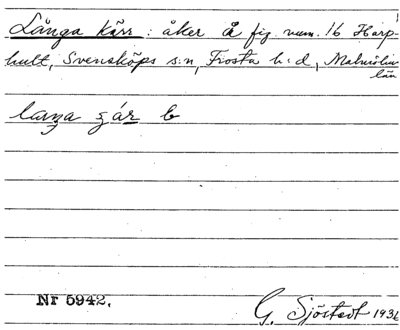 Långa kärr : åker å fig. num. 16 Harp-
hult, Svensköps s:n, Frosta h:d, Malmöhus
län
laŋa ʒár b
Nr 5942.
G. Sjöstedt 1936